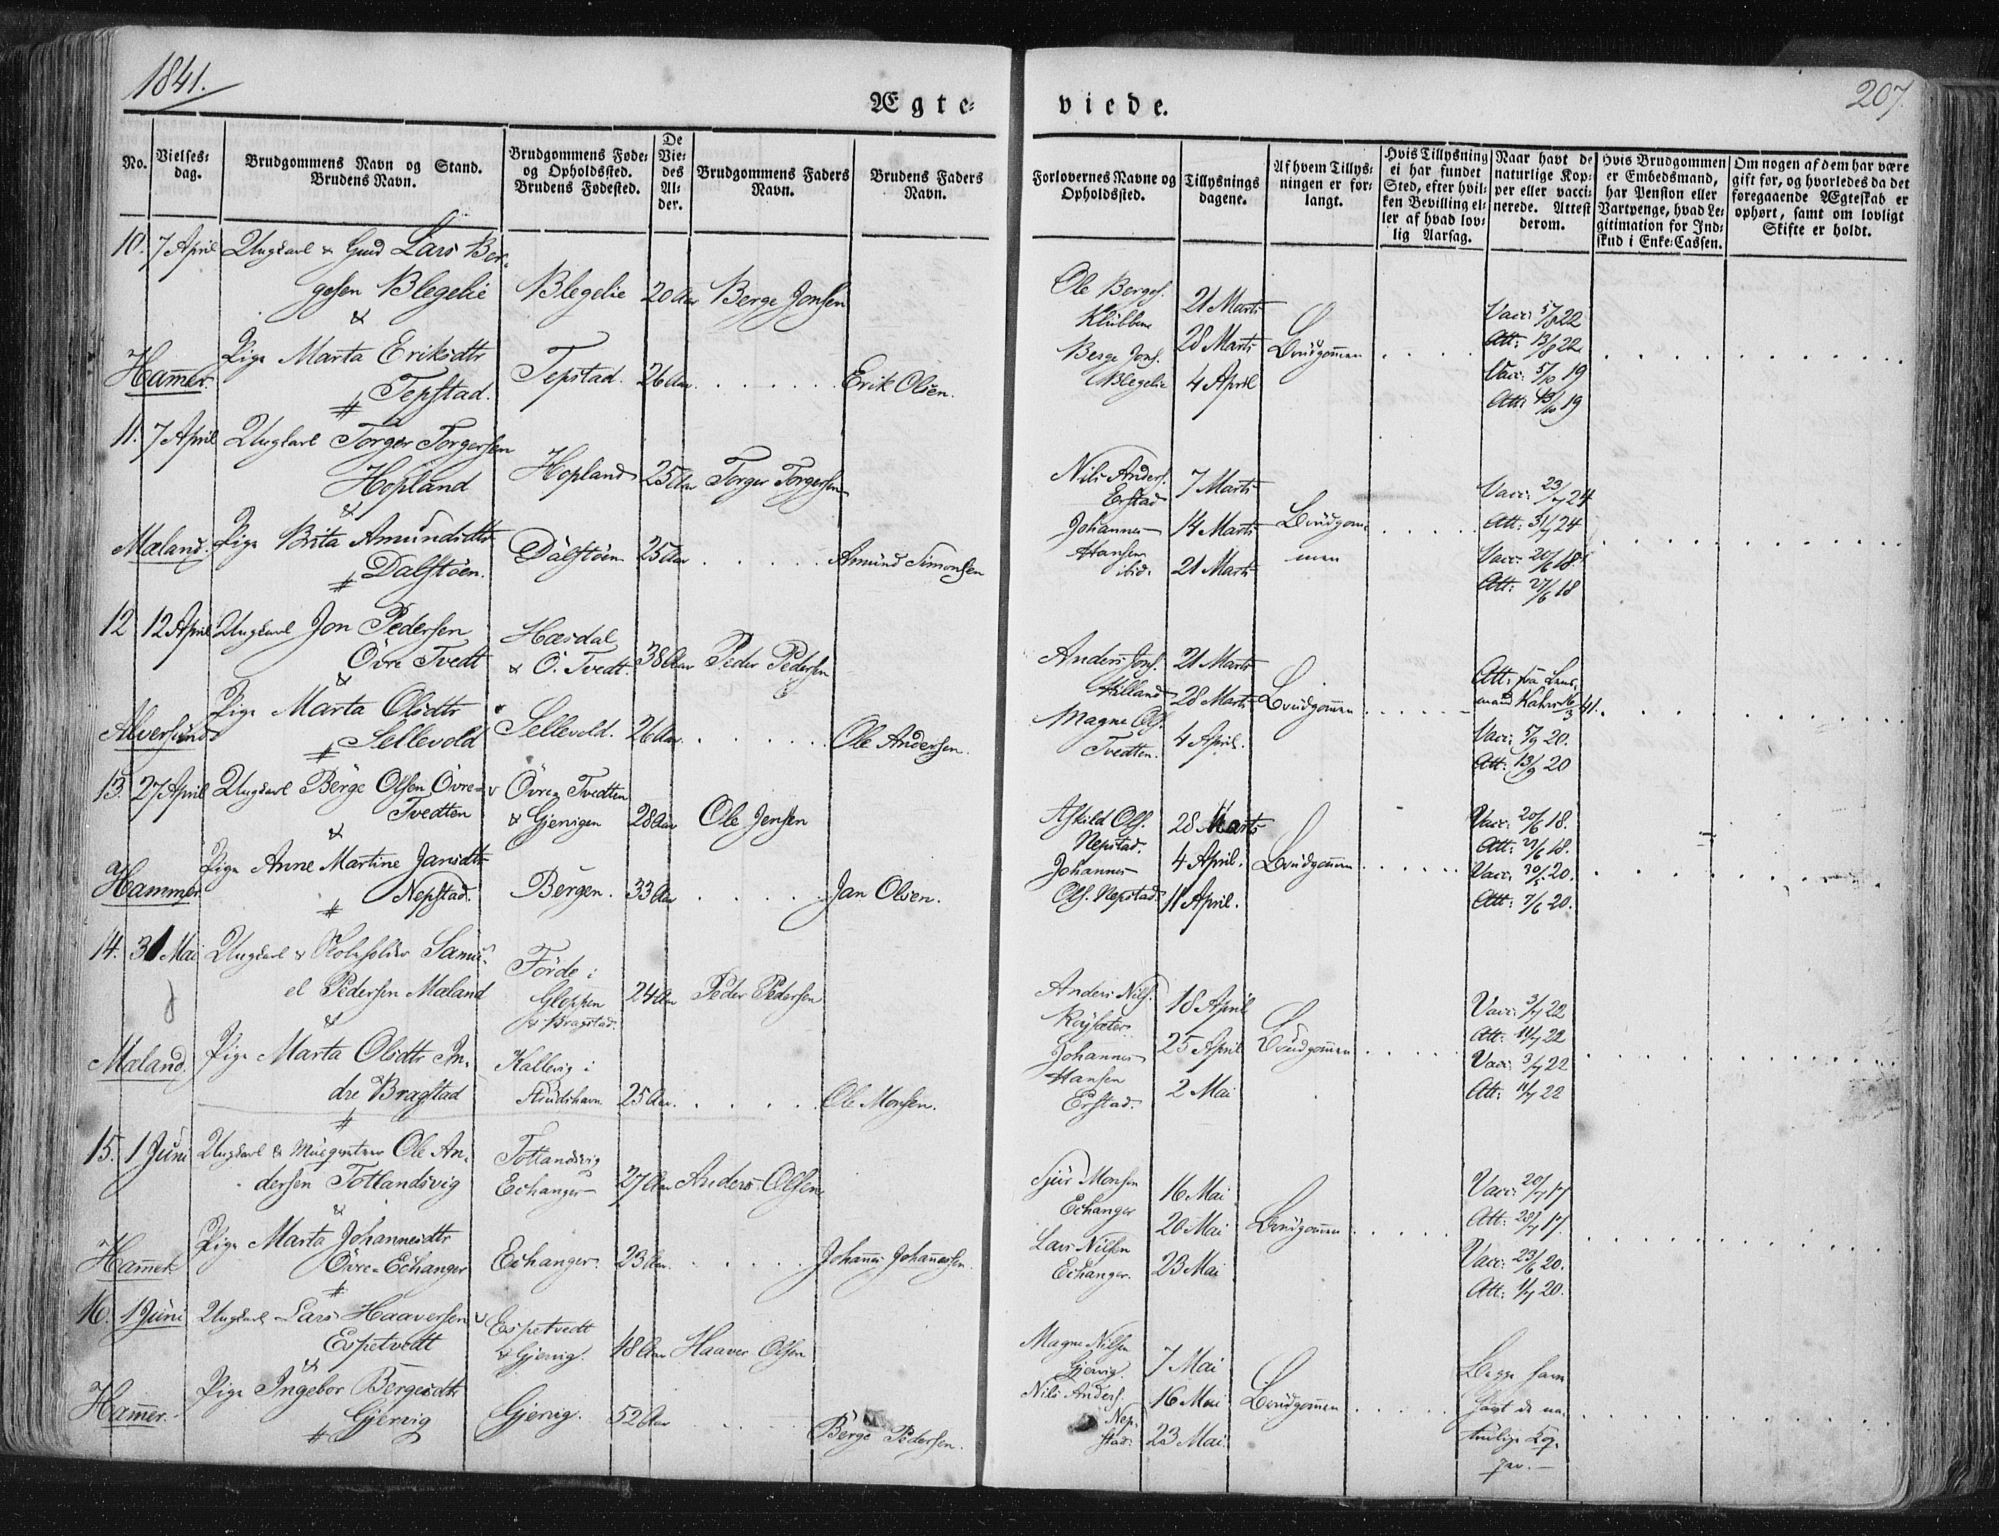 1841.
207.
Ægte-
viede.
No.
Vielses-
dag.
Brudgommens Navn og Stand.
Brudens Navn.
Brudgommens Føde-
og Opholdssted.
Brudens Fødested.
De
Vie-
des
Al-
der.
Brudgommens Faders
Navn.
Brudens Faders
Navn.
Forlovernes Navne og
Opholdssted.
Tillysnings
dagene.
Af hvem Tillys-
ningen er for-
langt.
Hvis Tillysning
ei har fundet
Sted, efter hvil-
ken Bevilling el-
ler af hvad lov-
lig Aarsag.
Naar havt de
naturlige Kop-
per eller vacci-
nerede. Attest
derom.
Hvis Brudgommen
er Embedsmand,
har Pension eller
Vartpenge, hvad Le-
gitimation for Ind-
skud i Enke-Cassen.
Om nogen af dem har være
gift før, og hvorledes da det
foregaaende Ægteskab er
ophørt, samt om lovligt
Skifte er holdt.
10. 7 April Ungkarl & Lars Ber-
gesen Blegelie Blegelie 20 Aar Berge Jonsen
&
Pige Marta Eriksdtr
Hammer. Tepstad. Tepstad. 26 Aar. Erik Olsen.
Ole Berges.
Klubben
Berge Jons.
Blegelie
21 Marts
28 Marts
4 April
Brudgommen
Vacc: 5/8 22
Att: 13/8 22
Vacc: 5/10 19
Att: 13/10 19
11. 7 April Ungkarl Torger Torgersen
Hopland Hopland 25 Aar Torger Torgersen
&
Mæland. Pige Brita Amundsdtr
Dalstøen. Dalstøen 25 Aar Amund Simonsen
Nils Anders.
Erstad
Johannes
Hansen
ibid.
7 Marts
14 Marts
21 Marts
Brudgom-
men
Vacc: 23/7 24
Att: 31/7 24
Vacc: 20/6 18
Att: 27/6 18
12 12 April Ungkarl Jon Pedersen
Øvre Tvedt
Hæsdal
& Ö. Tvedt. 38 Aar Peder Pedersen
&
Pige Marta Olsdtr
Alversund Sellevold Sellevold. 26 Aar. Ole Andersen.
Anders Jons.
Hilland
Magne Ols.
Tvedten.
21 Marts
28 Marts
4 April.
Brudgommen
Att: fra Lens-
mand 41.
Vacc: 5/9 20.
Att: 13/9 20
13. 27 April Ungkarl Børge Olsen Øvre-
Tvedten
Øvre Tvedten
& Gjervigen 28 Aar Ole Jensen
&
Pige Anne Martine Jansdtr
Hammer Nepstad. Bergen. 33 Aar Jan Olsen.
Askild Ols.
Nepstad.
Johannes
Ols. Nepstad.
28 Marts
4 April.
11 April.
Brudgommen
Vacc: 20/6 18.
Att: 27/6 18.
Vacc: 30/5 20.
Att: 7/6 20.
14. 31 Mai Ungkarl & Samu-
el Pedersen Mæland
Förde i
Gloppen
& Bragstad. 24 Aar Peder Pedersen
&
Mæland. Pige Marta Olsdtr In-
dre Bragstad
Kallevig i
25 Aar. Ole Monsen.
Anders Nils.
Røysæter
Johannes
Hansen
Erstad.
18 April
25 April
2 Mai
Brudgommen
Vacc: 3/7 22
Att: 11/7 22
Vacc: 3/7 22
Att: 11/7 22
15. 1 Juni Ungkarl & Ole An-
dersen Totlandsvig
Totlandsvig
Echanger 27 Aar Anders Olsen
&
Pige Marta Johannesdtr
Hammer. Øvre Echanger Echanger. 23 Aar. Johannes Johannessen.
Sjur Monsen
Echanger
Lars Nilsen
Echanger.
16 Mai
20 Mai
23 Mai
Brudgommen
Vacc: 20/7 17
Att: 28/7 17.
Vacc: 23/6 20.
Att: 1/7 20.
16. 1 Juni Ungkarl Lars Haaversen
Espetvedt
Espetvedt
& Gjervig. 48 Aar Haaver Olsen
&
Pige Ingebor Bergesdtr
Hammer. Gjervig Gjervig. 52 Aar Børge Pedersen.
Magne Nilsen
Gjervig.
Nils Anders.
Nep-
stad.
7 Mai
16 Mai
23 Mai.
Brudgommen
Begge have
havt de na-
turlige Kop-
per.